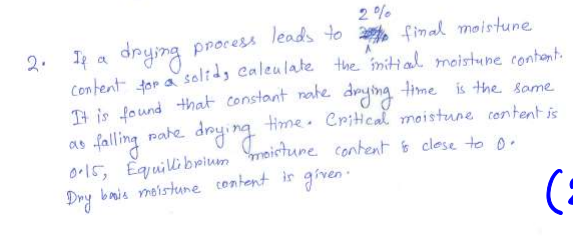 2%
2. If a drying process leads to final moisture
content for a solid, calculate the initial moisture content.
It is found that constant rate drying time is the same
as falling rate drying time. Critical moisture content is
0.15, Equillibrium moisture content is close to 0.
Dry basis moisture content is given.
(2